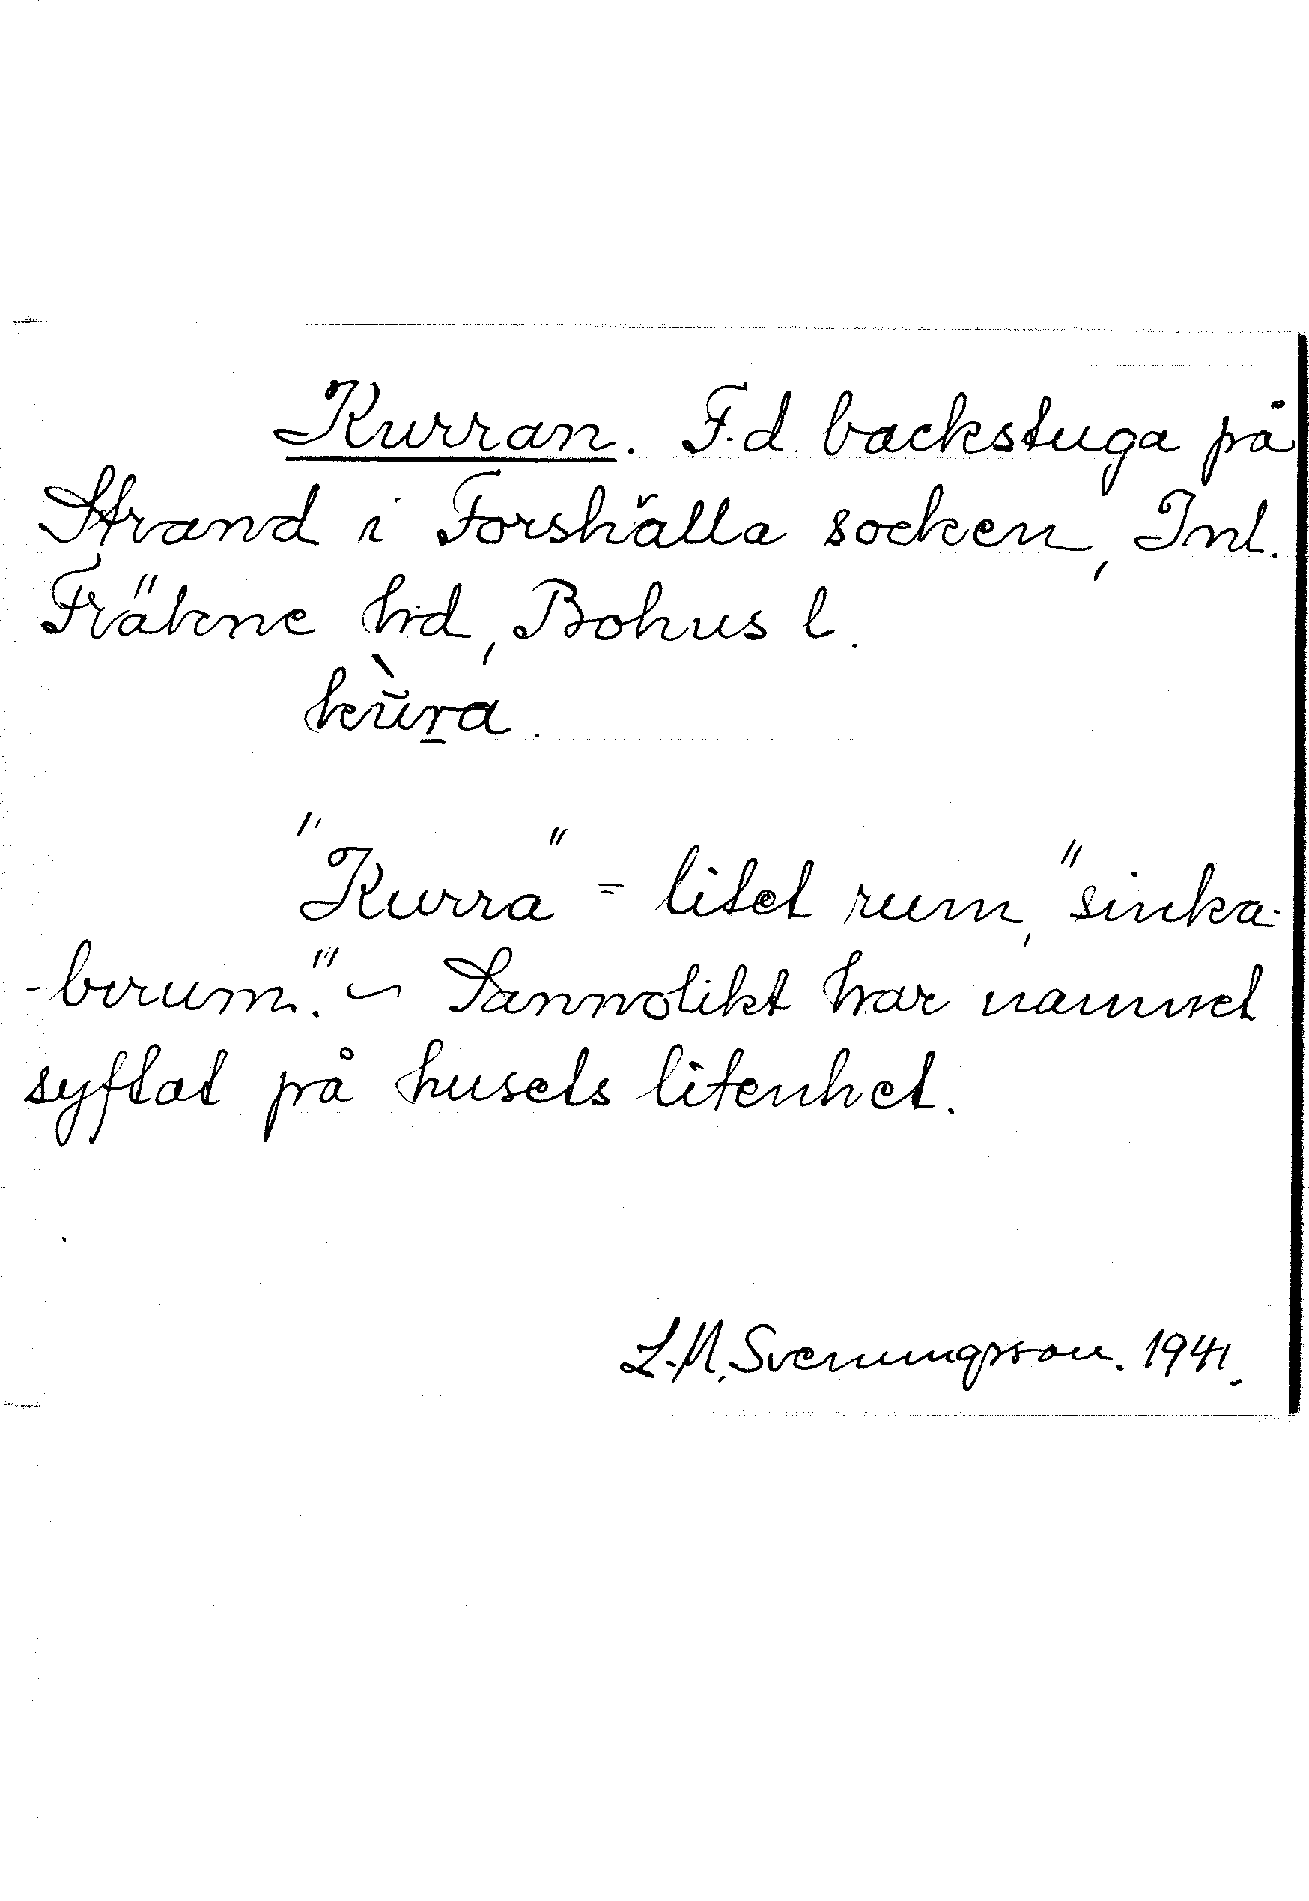 Kurran. F.d backstuga på
Strand i Forshälla socken, Inl.
Fräkne hd, Bohus l.
kùra.
"Kurra" = litet rum, "sinka-
-birum." - Sannolikt har namnet
syftat på husets litenhet.
L.M. Svenungsson. 1941.